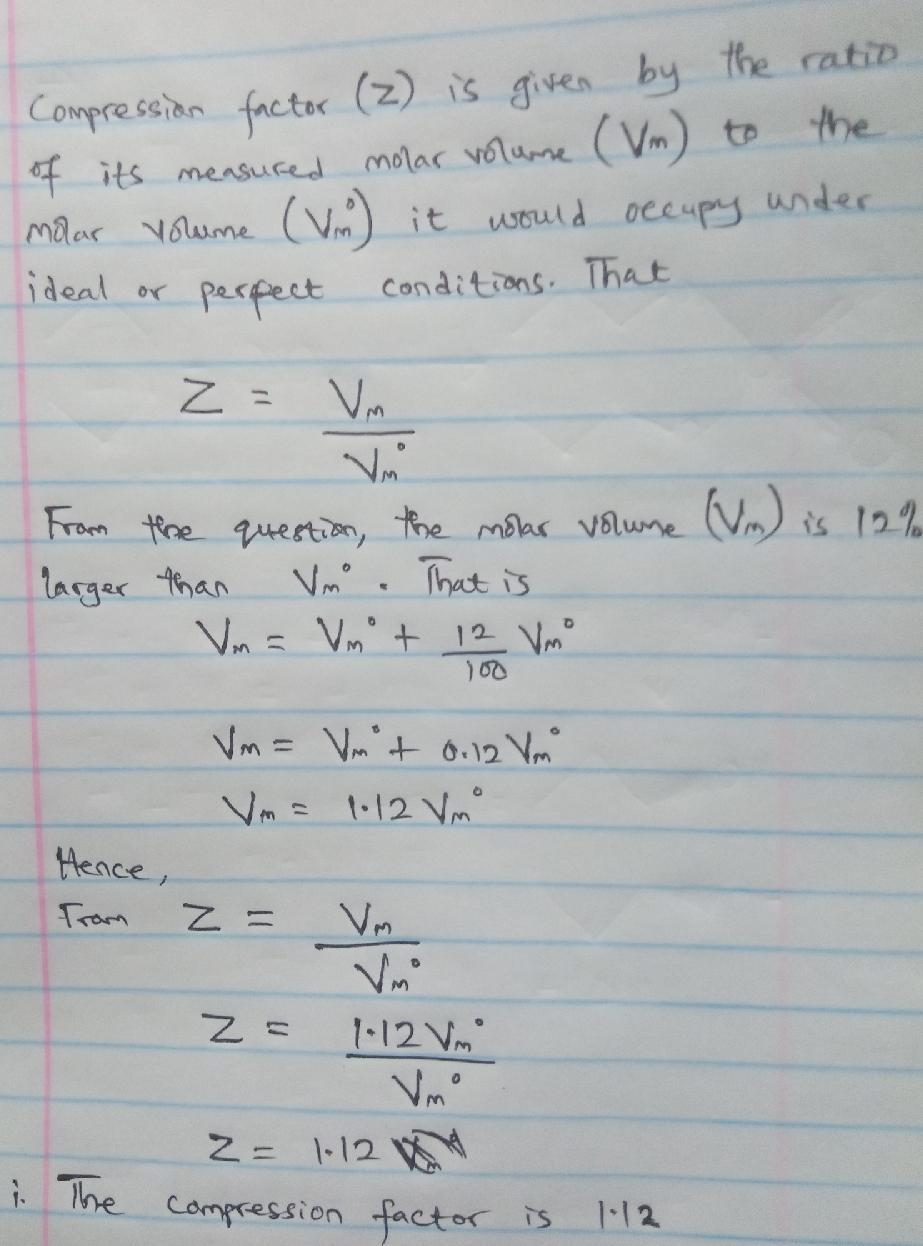 Compression factor (Z) is given by the ratio
of its measured molar volume (Vm) to the
molar volume (Vm°) it would occupy under
ideal or perfect conditions. That
Z = Vm / Vm°
From the question, the molar volume (Vm) is 12%
larger than Vm°. That is
Vm = Vm° + 12/100 Vm°
Vm = Vm° + 0.12 Vm°
Vm = 1.12 Vm°
Hence,
From Z = Vm / Vm°
Z = 1.12 Vm° / Vm°
Z = 1.12
i. The compression factor is 1.12